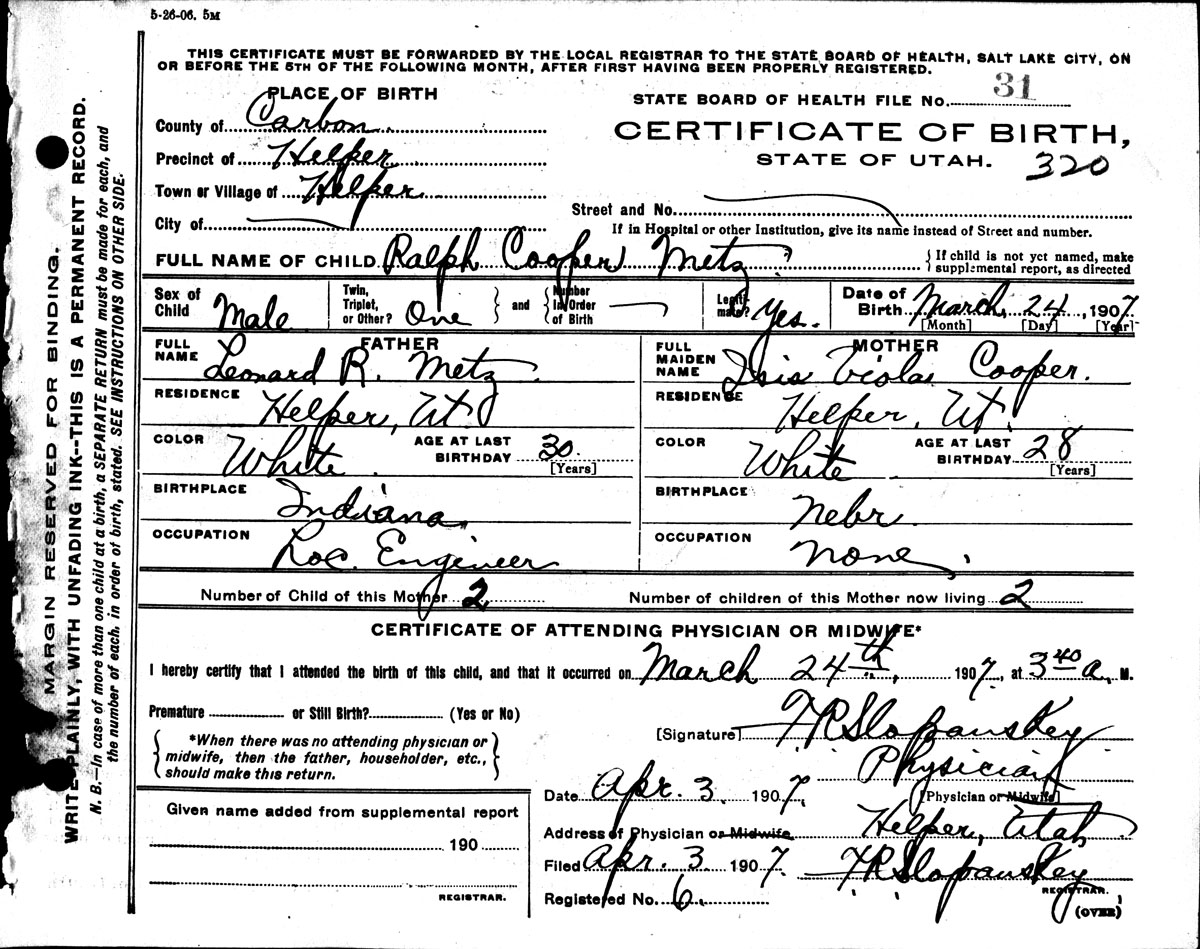 5-26-06. 5M
THIS CERTIFICATE MUST BE FORWARDED BY THE LOCAL REGISTRAR TO THE STATE BOARD OF HEALTH, SALT LAKE CITY, ON
OR BEFORE THE 5TH OF THE FOLLOWING MONTH, AFTER FIRST HAVING BEEN PROPERLY REGISTERED.
PLACE OF BIRTH
STATE BOARD OF HEALTH FILE No. 31
County of Carbon
CERTIFICATE OF BIRTH,
Precinct of Helper
STATE OF UTAH. 320
Town or Village of Helper
City of
Street and No.
If in Hospital or other Institution, give its name instead of Street and number.
FULL NAME OF CHILD Ralph Cooper Metz
{ If child is not yet named, make
supplemental report, as directed
Sex of Child Male
Twin, Triplet, or Other? One } and { Number in Order of Birth
Legitimate? Yes.
Date of Birth March 24, 1907
[Month] [Day] [Year]
FATHER
FULL NAME Leonard R. Metz
RESIDENCE Helper, Ut
COLOR White AGE AT LAST BIRTHDAY 30 [Years]
BIRTHPLACE Indiana
OCCUPATION Loc. Engineer
MOTHER
FULL MAIDEN NAME Isis Viola Cooper.
RESIDENCE Helper, Ut.
COLOR White AGE AT LAST BIRTHDAY 28 [Years]
BIRTHPLACE Nebr.
OCCUPATION None
Number of Child of this Mother 2 Number of children of this Mother now living 2
CERTIFICATE OF ATTENDING PHYSICIAN OR MIDWIFE*
I hereby certify that I attended the birth of this child, and that it occurred on March 24th, 1907, at 3 40 a. M.
Premature or Still Birth? (Yes or No)
{ *When there was no attending physician or
midwife, then the father, householder, etc.,
should make this return. }
[Signature] F.R. Slopanskey
Physician
[Physician or Midwife]
Date Apr. 3. 1907.
Address of Physician or Midwife Helper, Utah
Filed Apr. 3. 1907. F.R. Slopanskey
REGISTRAR.
Registered No. 6.
(OVER)
Given name added from supplemental report
190
REGISTRAR.
MARGIN RESERVED FOR BINDING.
WRITE PLAINLY, WITH UNFADING INK--THIS IS A PERMANENT RECORD.
N. B.--In case of more than one child at a birth, a SEPARATE RETURN must be made for each, and
the number of each, in order of birth, stated. SEE INSTRUCTIONS ON OTHER SIDE.